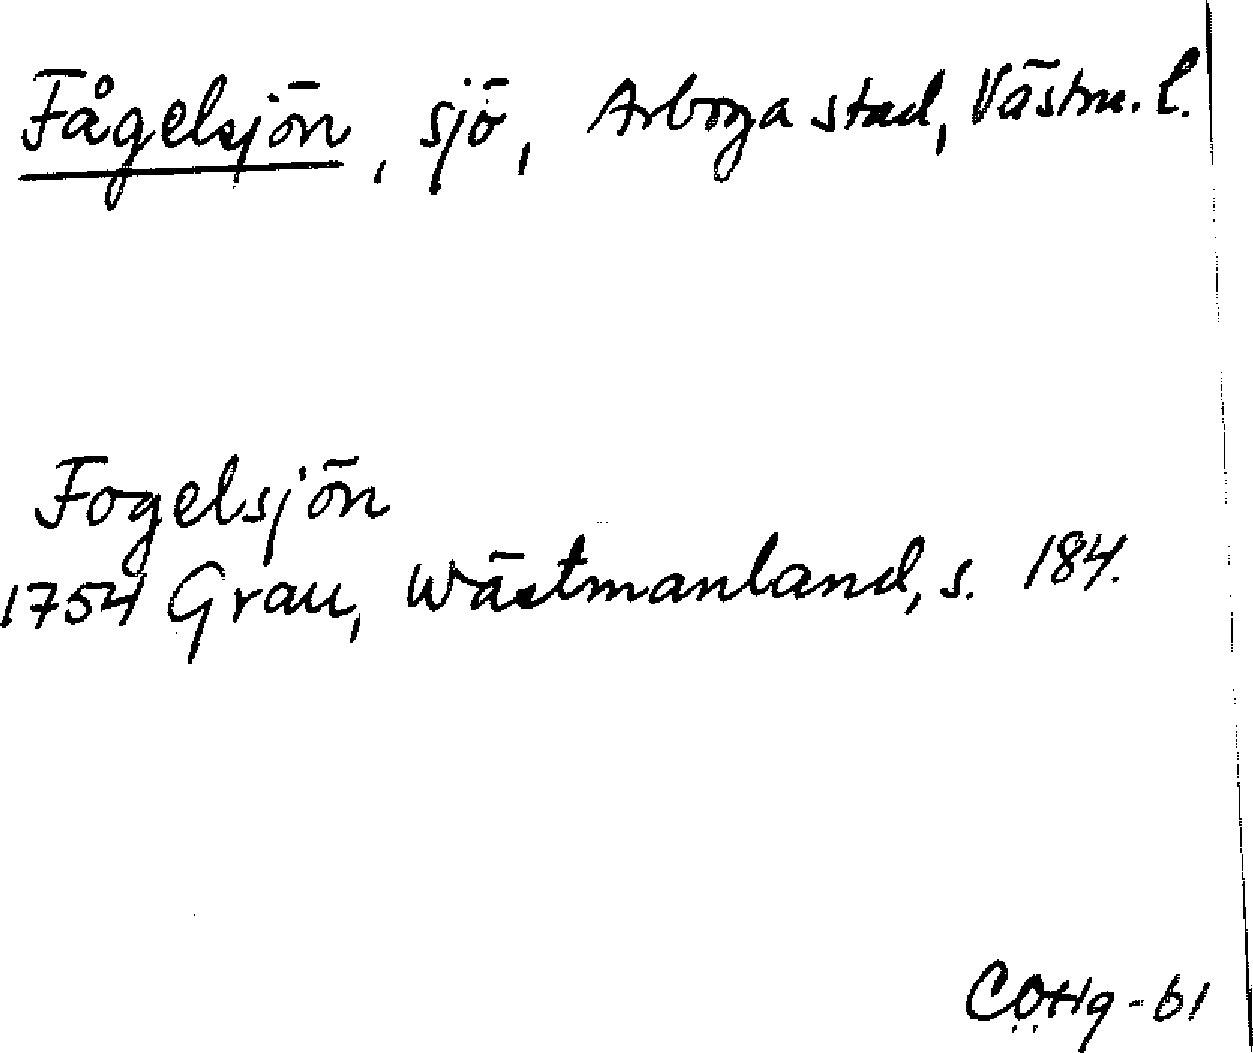 Fågelsjön, sjö, Arboga stad, Västm. l.
Fogelsjön
1754 Grau, Wästmanland, s. 184.
COHg-61